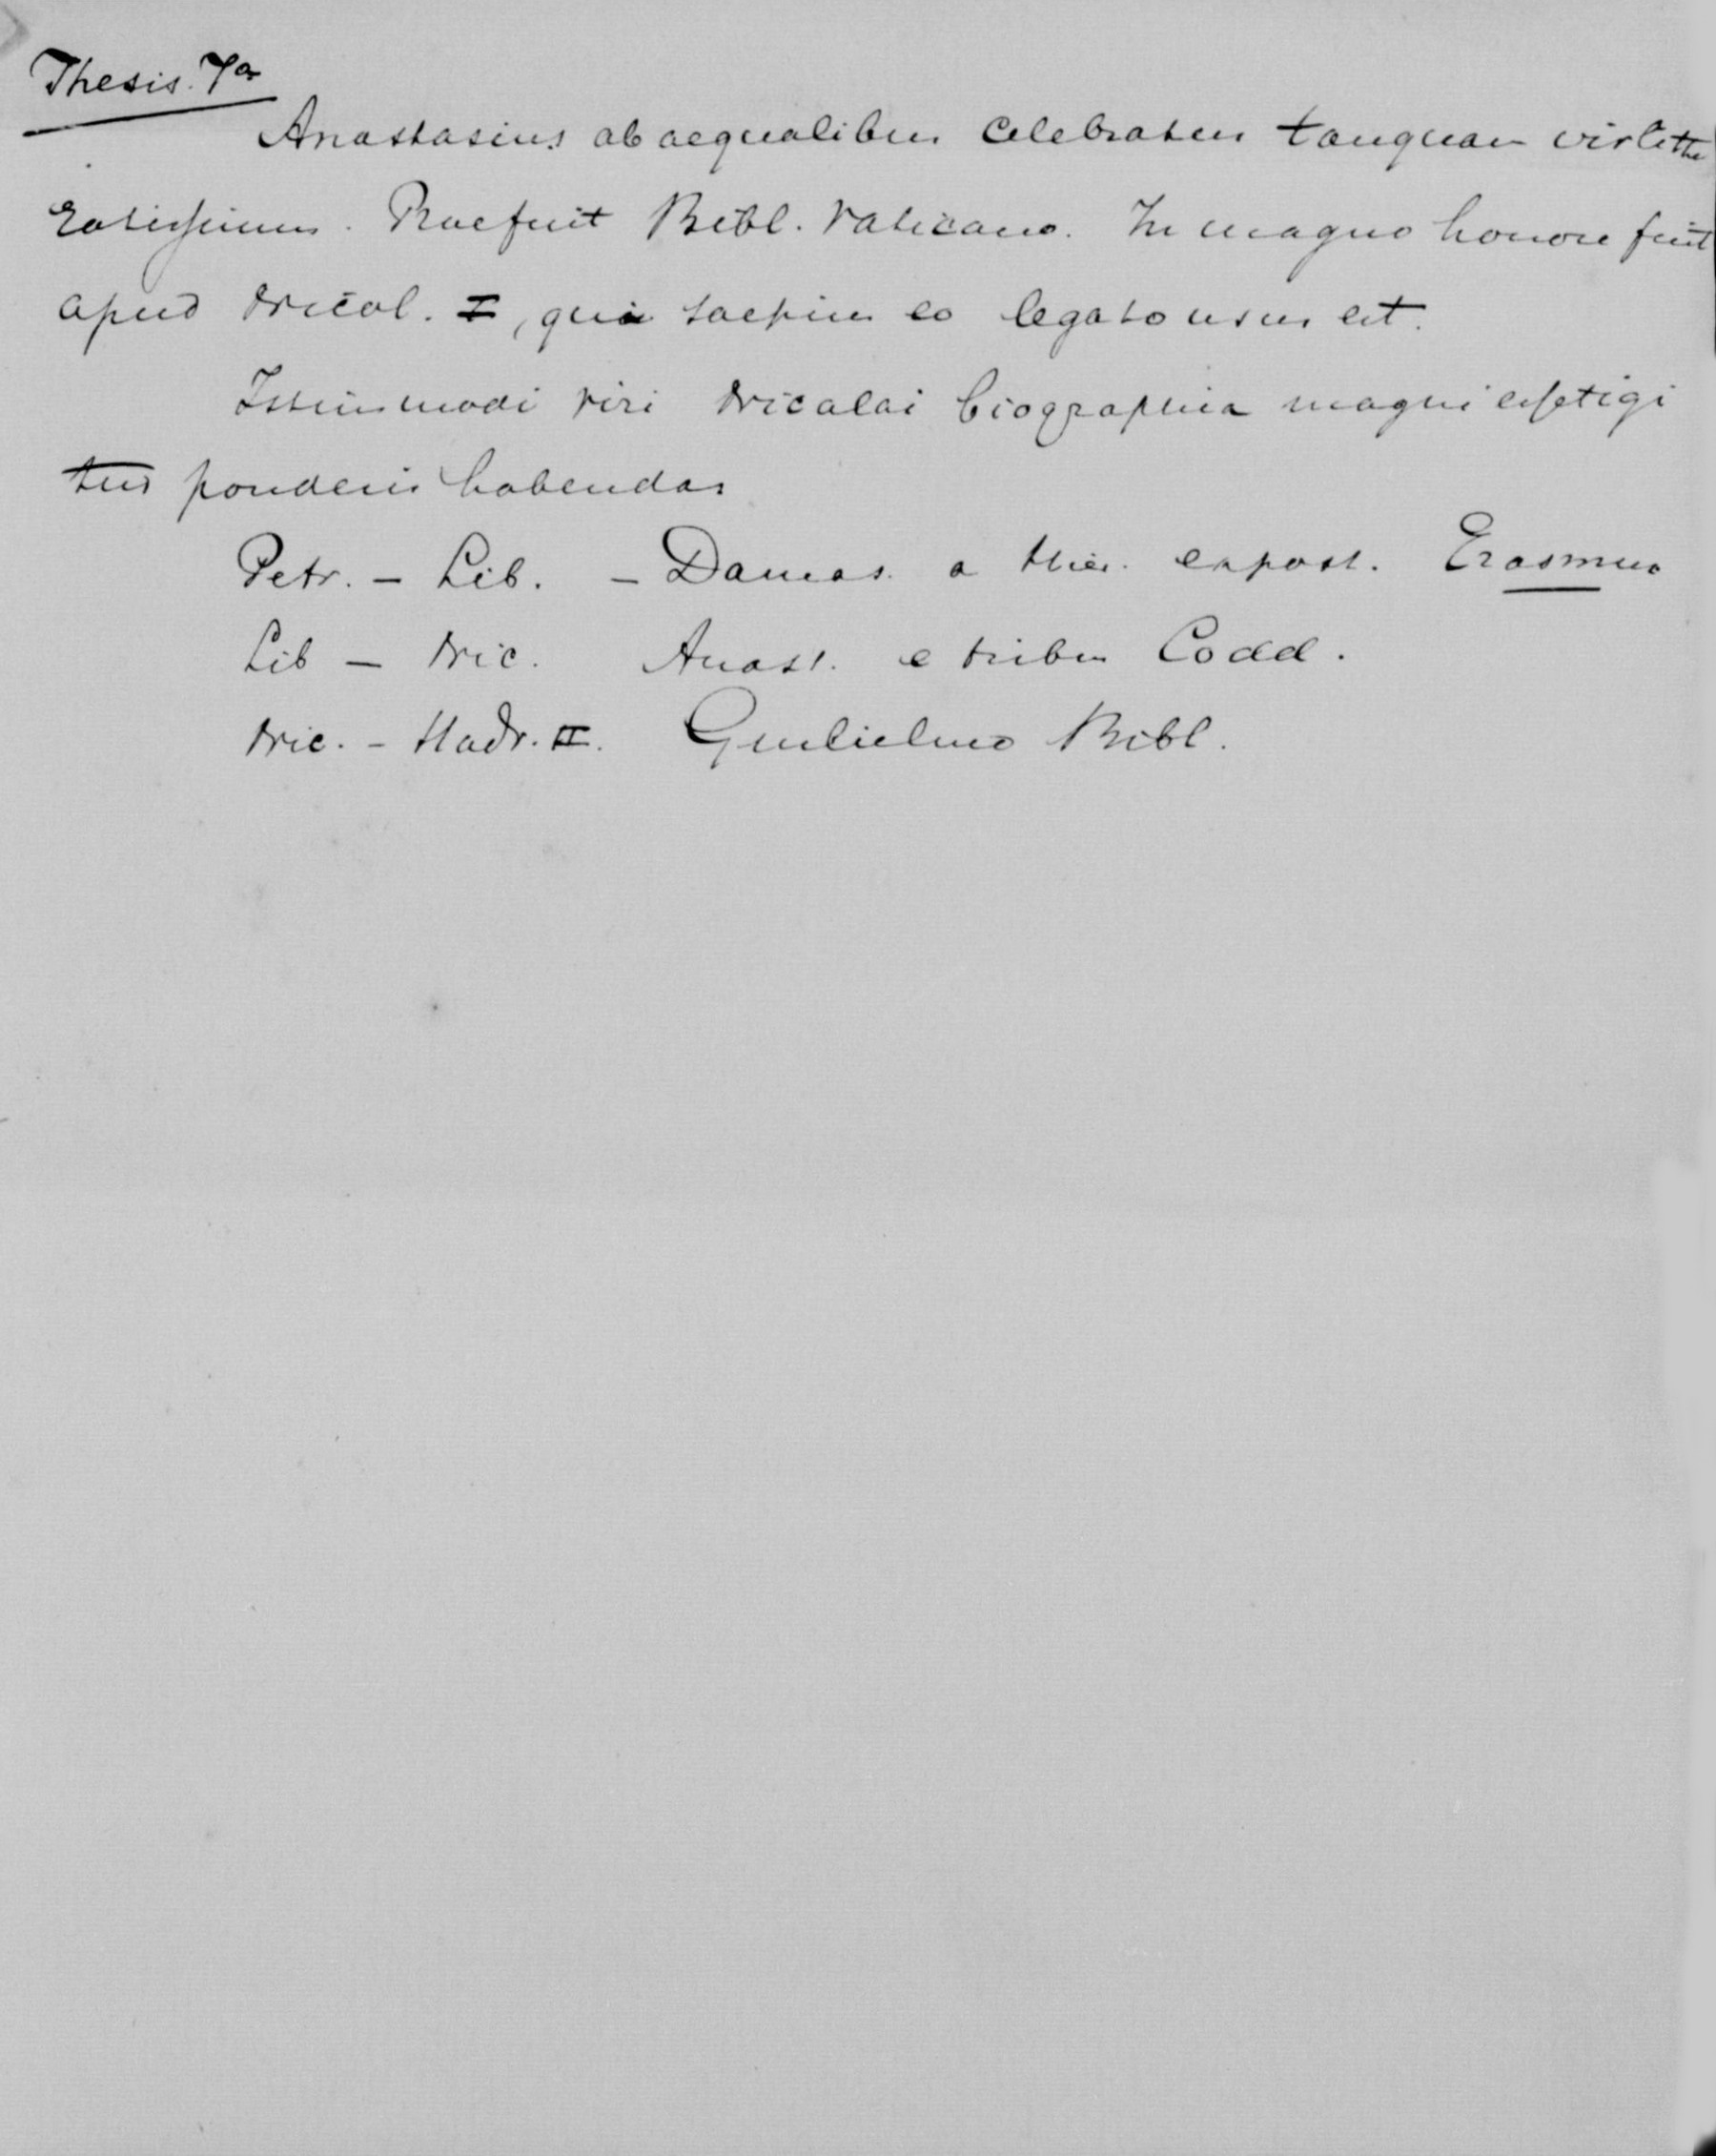 Thesis. 7a
Anastasius ab aequalibus celebratus tanquam vir litte
ratissimus. Praefuit Bibl. Vaticano. In magno honore fuit
apud Nicol. I, qui saepius eo legato usus est.
Istiusmodi viri Nicolai biographia magni
ponderis habenda
Petr. - Lib. - Damas. a Hier. expost. Erasmus
Lib - Nic. Anast. e tribus Codd.
Nic. - Hadr. II. Gulielmo Bibl.